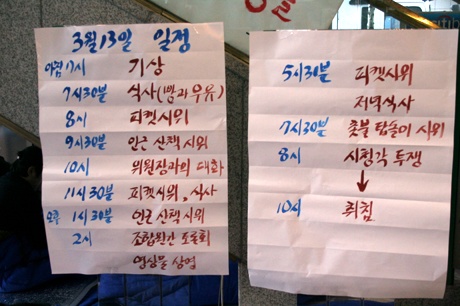 3월13일 일정
아침 7시 기상
7시30분 식사(빵과 우유)
8시 피켓시위
9시30분 인근 산책 시위
10시 위원장과의 대화
11시30분 피켓시위, 식사
오후 1시30분 인근 산책 시위
2시 조합원간 토론회
영상물 상영
5시30분 피켓시위
저녁식사
7시30분 촛불 탑돌이 시위
8시 시청각 투쟁
10시 취침